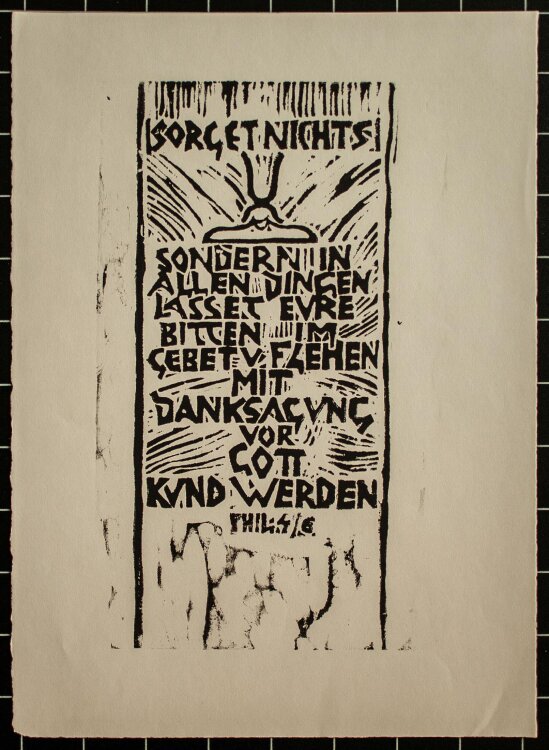 SORGET NICHTS
SONDERN IN
ALLEN DINGEN
LASSET EVRE
BITTEN IM
GEBET V. FLEHEN
MIT
DANKSAGVNG
VOR
GOTT
KVND WERDEN
PHIL: 4/6.